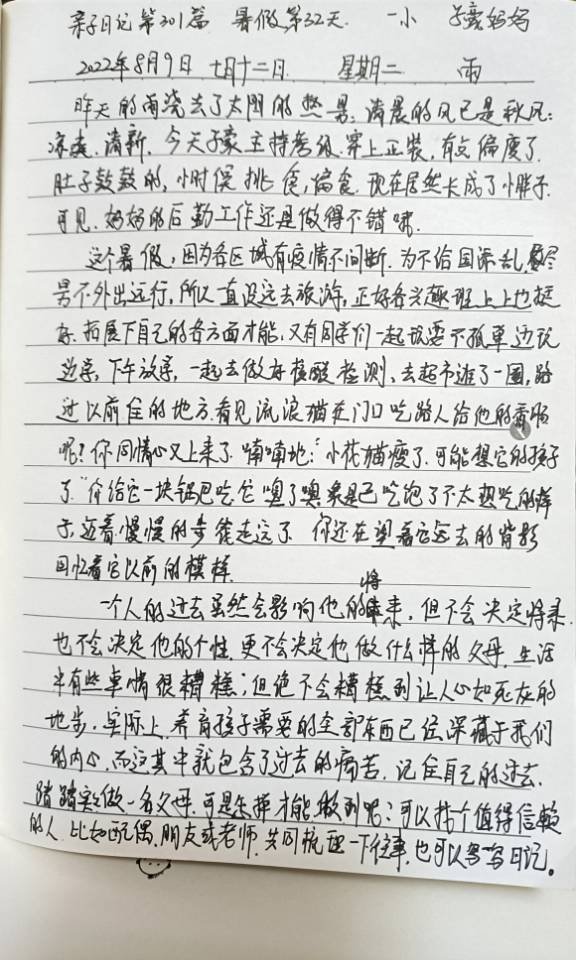 亲子日记第301篇 暑假第32天. 一小 子豪妈妈
2022年8月9日 七月十二日. 星期二 雨
昨天的雨浇去了太阳的热暑;清晨的风已是秋风:
凉爽.清新.今天子豪主持考级.穿上正装,有点偏瘦了.
肚子鼓鼓的,小时侯挑食,偏食.现在居然长成了小胖子.
可见.妈妈的后勤工作还是做得不错嘛.
这个暑假,因为各区域有疫情不间断.为不给国添乱,尽
量不外出远行,所以一直没远去旅游,正好各兴趣班上上也挺
好.拓展下自己的各方面才能,又有同学们一起玩耍不孤单边玩
边学,下午放学,一起去做好核酸检测,去超市逛了一圈,路
过以前住的地方.看见流浪猫在门口吃路人给他的香肠
呢?你同情心又上来了.喃喃地:“小花猫瘦了.可能想它的孩子
了.”你给它一块锅巴吃.它嗅了嗅象是已吃饱了不太想吃的样
子,迈着慢慢的步徒走远了.你还在望着它远去的背影
回忆着它以前的模样.
一个人的过去虽然会影响他的将来,但不会决定将来.
也不会决定他的个性.更不会决定他做什么样的父母.生活
中有些事情很糟糕;但绝不会糟糕到让人心如死灰的
地步.实际上.养育孩子需要的全部东西已经深藏于我们
的内心.而这其中就包含了过去的痛苦.记住自己的过去.
踏踏实实做一名父母.可是怎样才能做到呢?可以找个值得信赖
的人.比如配偶.朋友或老师.共同梳理一下往事.也可以写写日记。